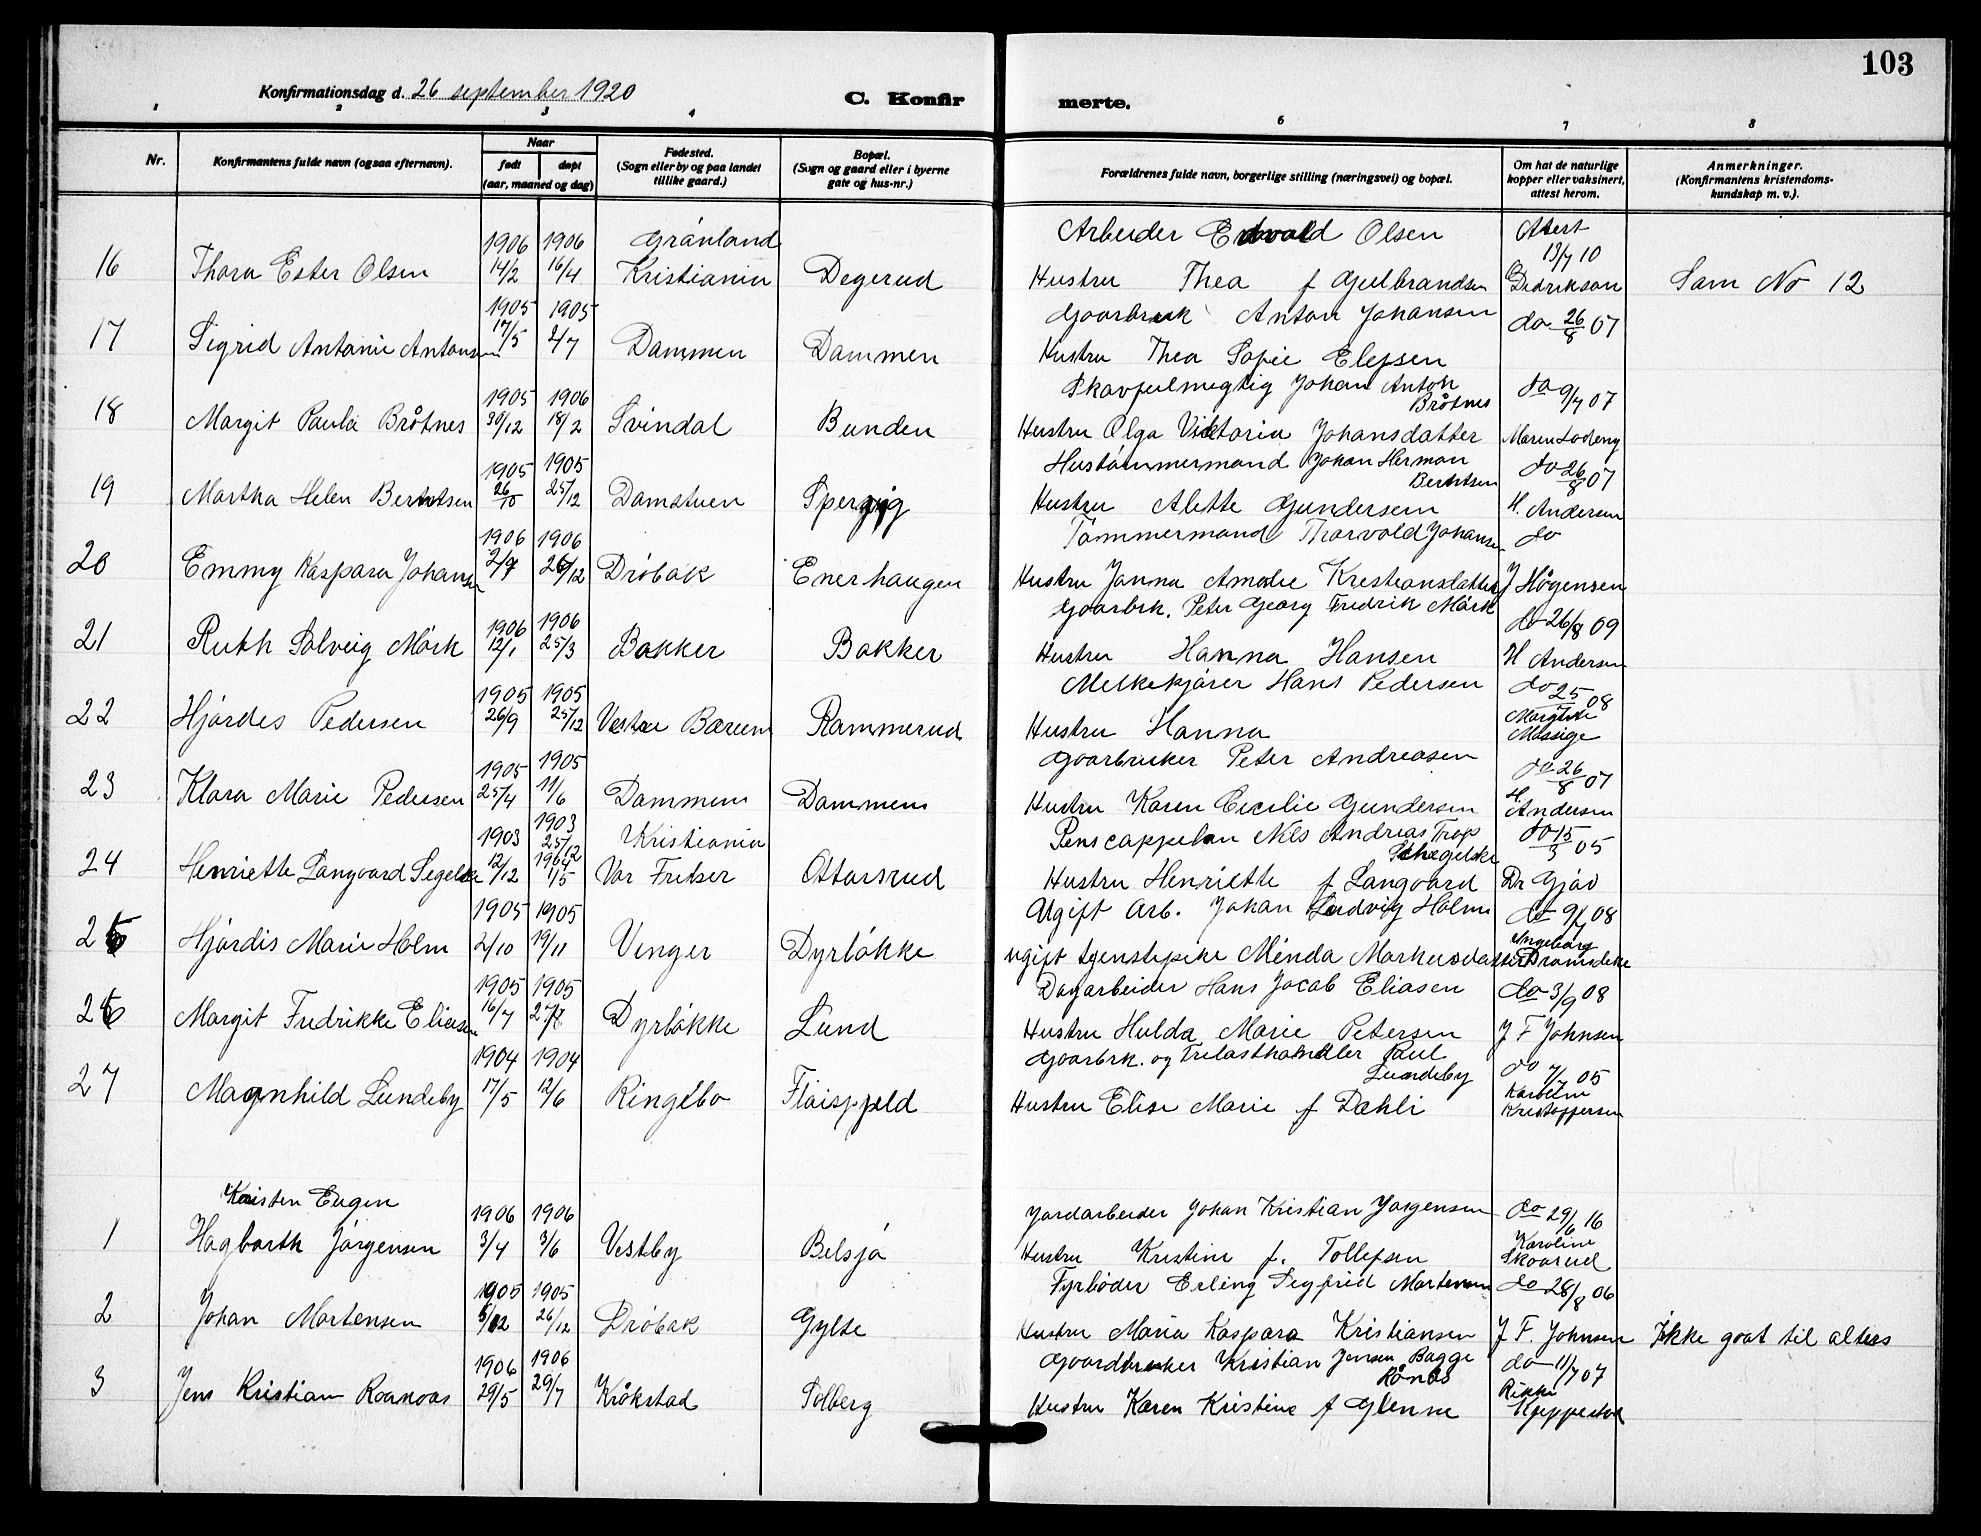 103
Konfirmationsdag d. 26 september 1920
C. Konfir merte.
1 2 3 4 6 7 8
Nr.
Konfirmantens fulde navn (ogsaa efternavn).
Naar
født døpt
(aar, maaned og dag)
Fødested.
(Sogn eller by og paa landet
tillike gaard.)
Bopæl.
(Sogn og gaard eller i byerne
gate og hus-nr.)
Forældrenes fulde navn, borgerlige stilling (næringsvei) og bopæl.
Om hat de naturlige
kopper eller vaksinert,
attest herom.
Anmerkninger.
(Konfirmantens kristendoms-
kundskap m. v.).
1906 1906 Grönland Arbeider Edvald Olsen Attest
13/7 10
16 Thora Ester Olsen 14/2 16/4 Kristiania Degerud Hustru Thea f Gulbrandsen Didrikson Som No 12
1905 1905 Gaarbruk Anton Johansen do 26/8 07
17 Sigrid Antonie Antonsen 17/5 2/7 Dammen Dammen Hustru Thea Sofie Elefsen
1905 1906 Skavfulmegtig Johan Anton do 9/7 07
Bråtnes
18 Margit Paula Bråtnes 30/12 18/2 Svindal Bunden Hustru Olga Viktoria Johansdatter Maren Lodeng
1905 1905 Hustömmermand Johan Herman do 26/8 07
Berntsen
19 Martha Helen Berntsen 26/10 25/12 Damstuen Spervig Hustru Alette Gundersen H. Andersen
1906 1906 Tömmermand Thorvald Johansen do
20 Emmy Kaspara Johansen 2/7 26/12 Dröbak Enerhaugen Hustru Janna Amalie Kristiansdatter J Högensen
1906 1906 Gaarbrk. Peter Georg Fredrik Mörk do 26/8 09
21 Ruth Solveig Mörk 12/1 25/3 Bakker Bakker Hustru Hanna Hansen H Andersen
1905 1905 Melkekjörer Hans Pedersen do 25 08
22 Hjördes Pedersen 26/9 25/12 Vestre Bærum Rammerud Hustru Hanna
1905 1905 Gaarbruker Peter Andreasen do 26/8 07
23 Klara Marie Pedersen 25/4 11/6 Dammen Dammen Hustru Karen Cecilie Gundersen H. Andersen
1903 1903 25/12 Kristiania Penscappelan Nils Andreas do 15/3 05
24 Henriette Langaard 12/12 1904 1/5 Vor Frelser Ottarsrud Hustru Henriette f Langaard Dr Gjör
1905 1905 Ugift Arb. Johan Ludvig Holm do 08
25 Hjördis Marie Holm 2/10 19/11 Vinger Dyrlökke ugift tjenstepike Minda Markusdatter Ingeborg
1905 1905 Dagarbeider Hans Jacob Eliasen do 3/9 08
26 Margit Fredrikke Eliasen 16/7 Dyrlökke Lund Hustru Hulda Marie Petersen J F Johnsen
1904 1904 Gaarbrk. og Trelasthandler Paul do 7/7 05
Lundeby
27 Magnhild Lundeby 17/5 12/6 Ringebo Flaisppeld Hustru Elise Marie f Dahli Karoline Kristoffersen
Kristen Eugen 1906 1906 Jordarbeider Johan Kristian Jörgensen do 29/6 16
1 Hagbarth Jörgensen 3/4 3/6 Vestby Belsjö Hustru Kristine f. Tollefsen Karoline Skaarud
1905 1905 Fyrböder Erling Segfred Mortensen do 28/8 06
2 Johan Mortensen 5/12 26/12 Dröbak Gylte Hustru Maria Kaspara Kristiansen J F. Johnsen Ikke gaat til alters
1906 1906 Gaardbruker Kristian Jensen Bagge do 11/7 07
Rånås
3 Jens Kristian Raanaas 29/5 29/7 Kråkstad Solberg Hustru Karen Kristine f Glenne Rikke Kjeppestad